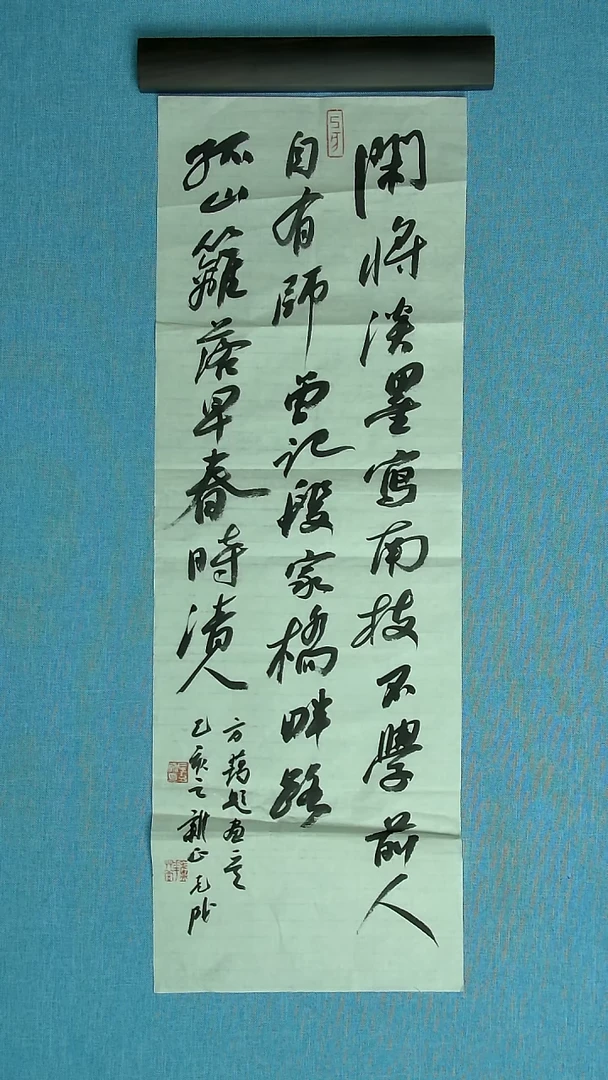 閑將淡墨寫南枝不學前人
自有師曾記段家橋畔路
孤山籬落早春時清人
方薰題畫一首
乙亥之新正